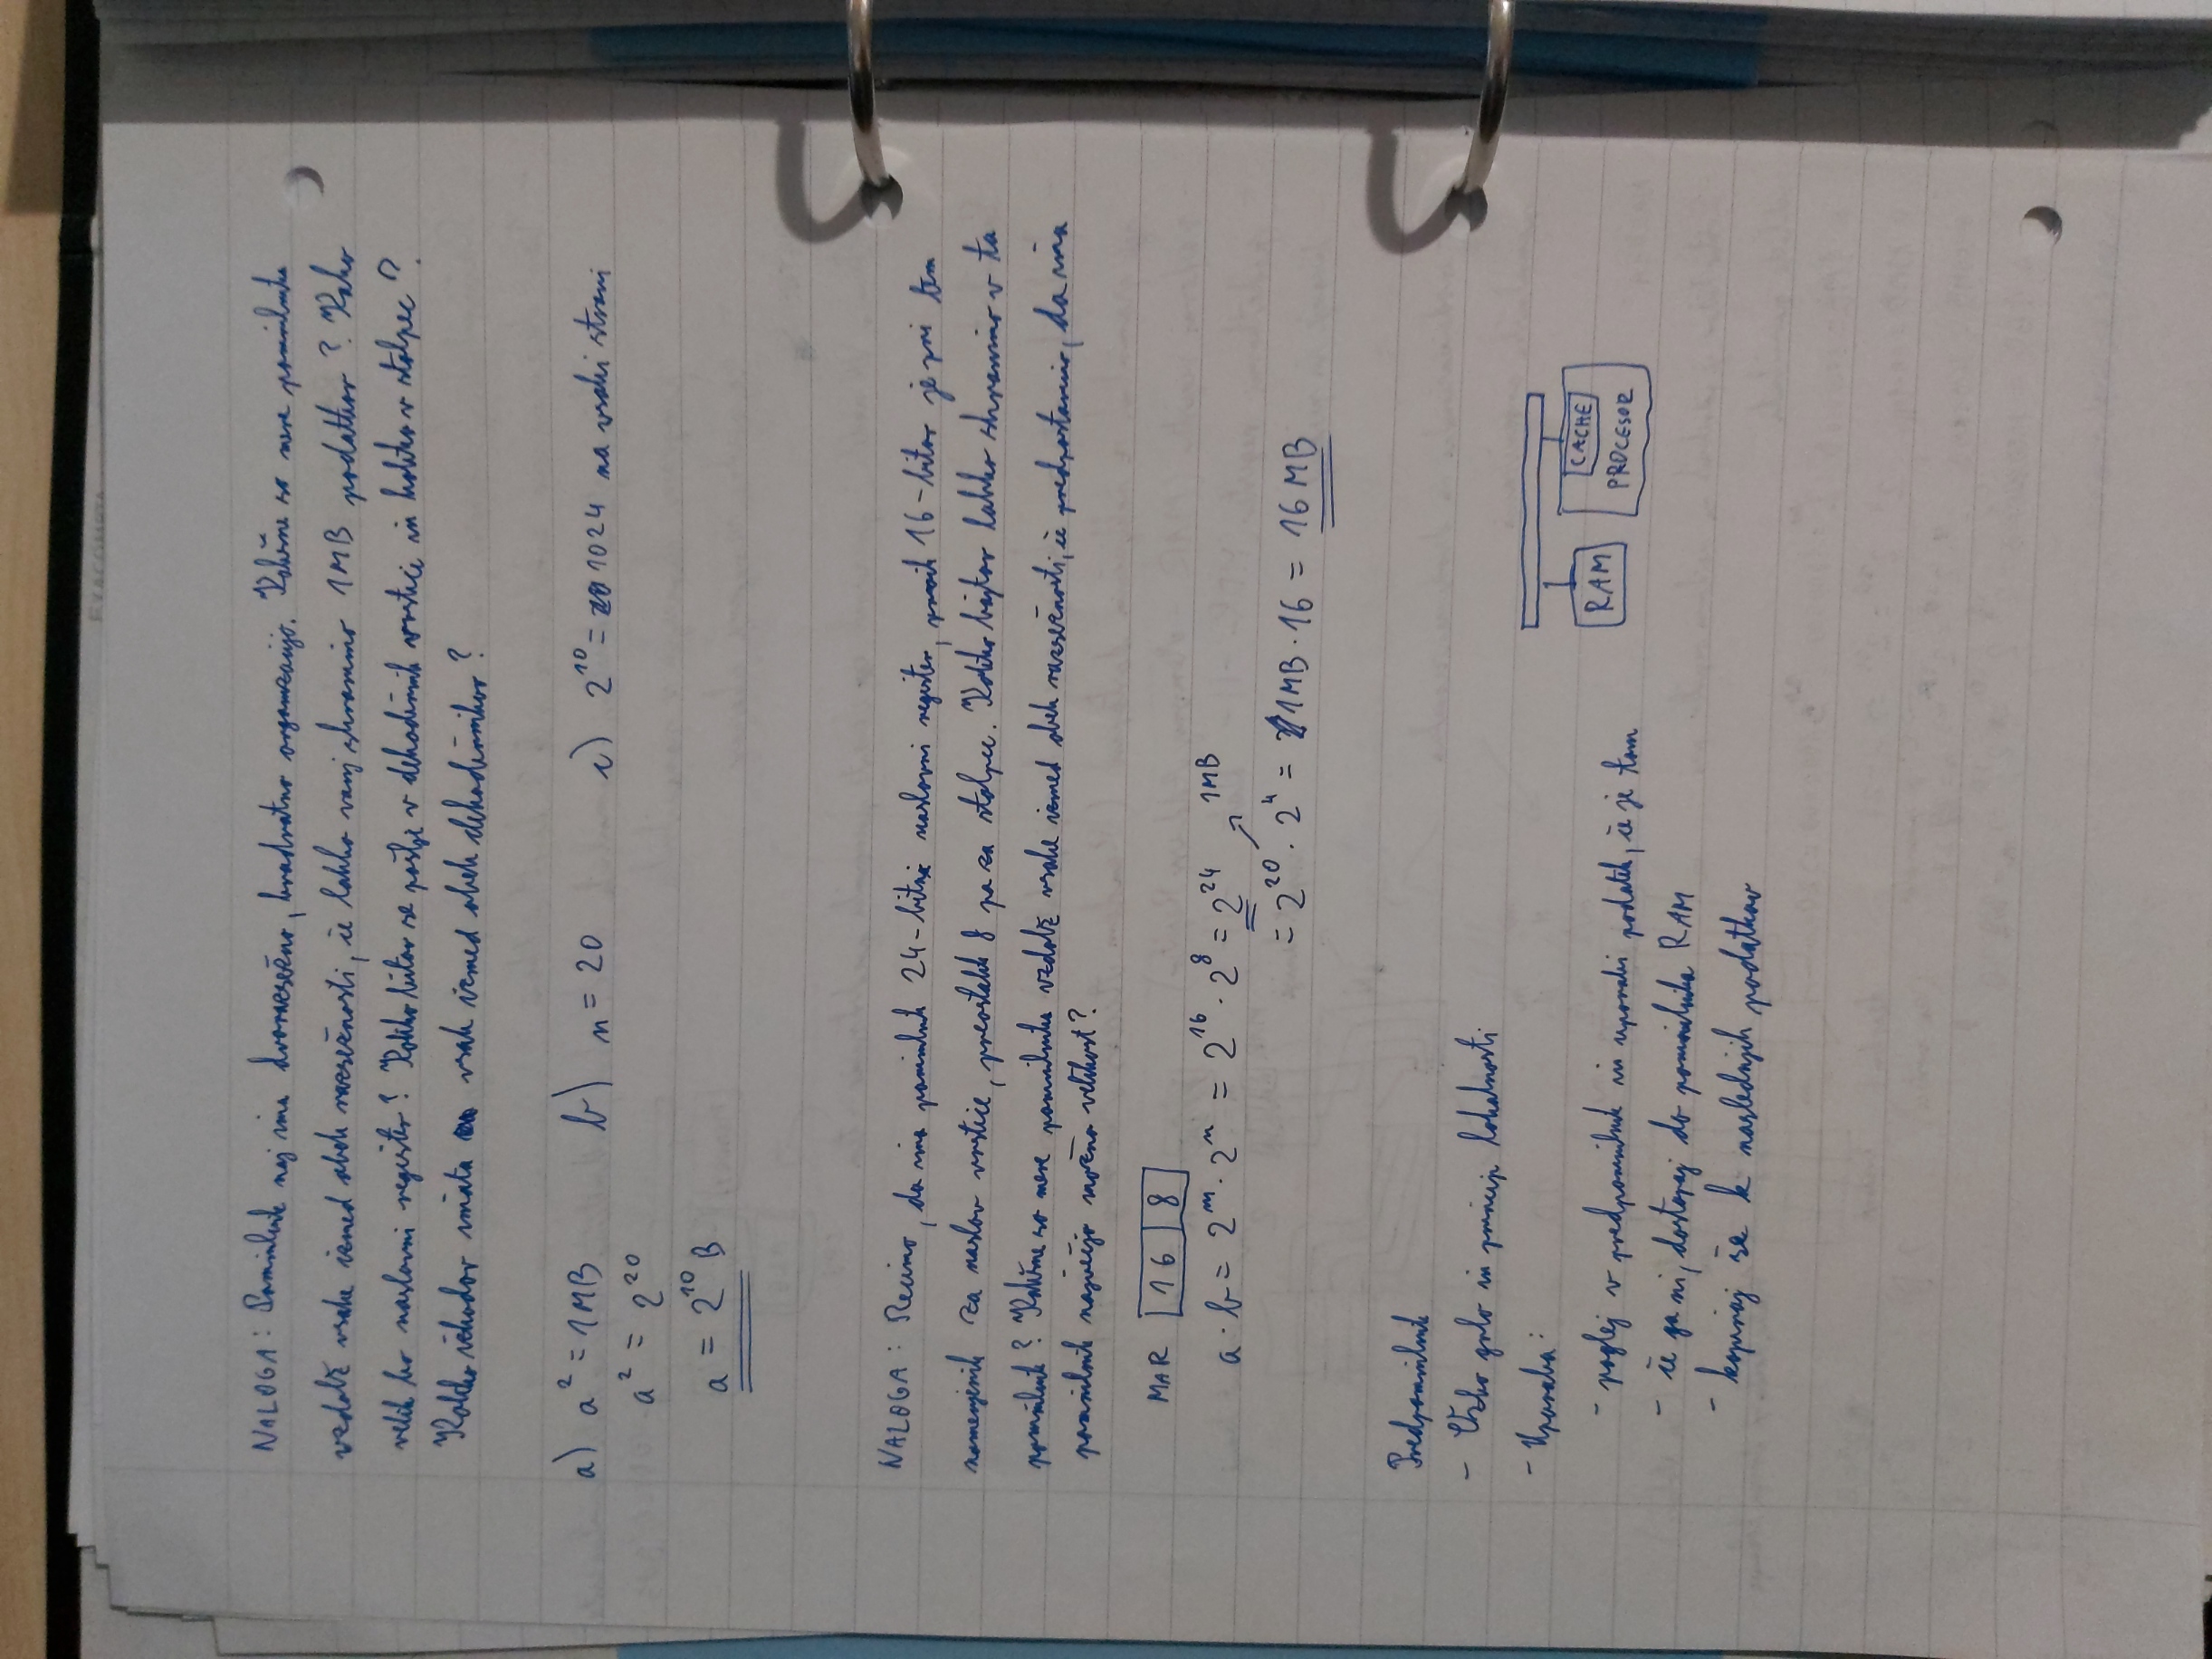 NALOGA: Pomnilnik naj ima dvorazsežno, kvadratno organizacijo. Kakšne so mere pomnilnika
vzdolž vsake izmed obeh razsežnosti, če lahko vanj shranimo 1MB podatkov? Kako
velik bo naslovni register? Koliko bitov se pošlje v dekodirnik vrstice in koliko v stolpec?
Koliko izhodov imata vsak izmed obeh dekodirnikov?
a) a² = 1MB b) n = 20 c) 2¹⁰ = 1024 na vsaki strani
a² = 2²⁰
a = 2¹⁰ B
NALOGA: Recimo, da ima pomnilnik 24-bitni naslovni register, prvih 16-bitov je pri tem
namenjenih za naslov vrstice, preostalih 8 pa za stolpec. Koliko bajtov lahko shranimo v ta
pomnilnik? Kakšne so mere pomnilnika vzdolž vsake izmed obeh razsežnosti, če predpostavimo, da ima
pomnilnik največjo možno velikost?
MAR 16 8
a · b = 2ᵐ · 2ⁿ = 2¹⁶ · 2⁸ = 2²⁴ 1MB
= 2²⁰ · 2⁴ = 1MB · 16 = 16 MB
Predpomnilnik
- Ozko grlo in princip lokalnosti
- Uporaba:
- poglej v predpomnilnik in uporabi podatek, če je tam
- če ga ni, dostopaj do pomnilnika RAM
- kopiraj še k naslednjih podatkov
RAM
CACHE
PROCESOR